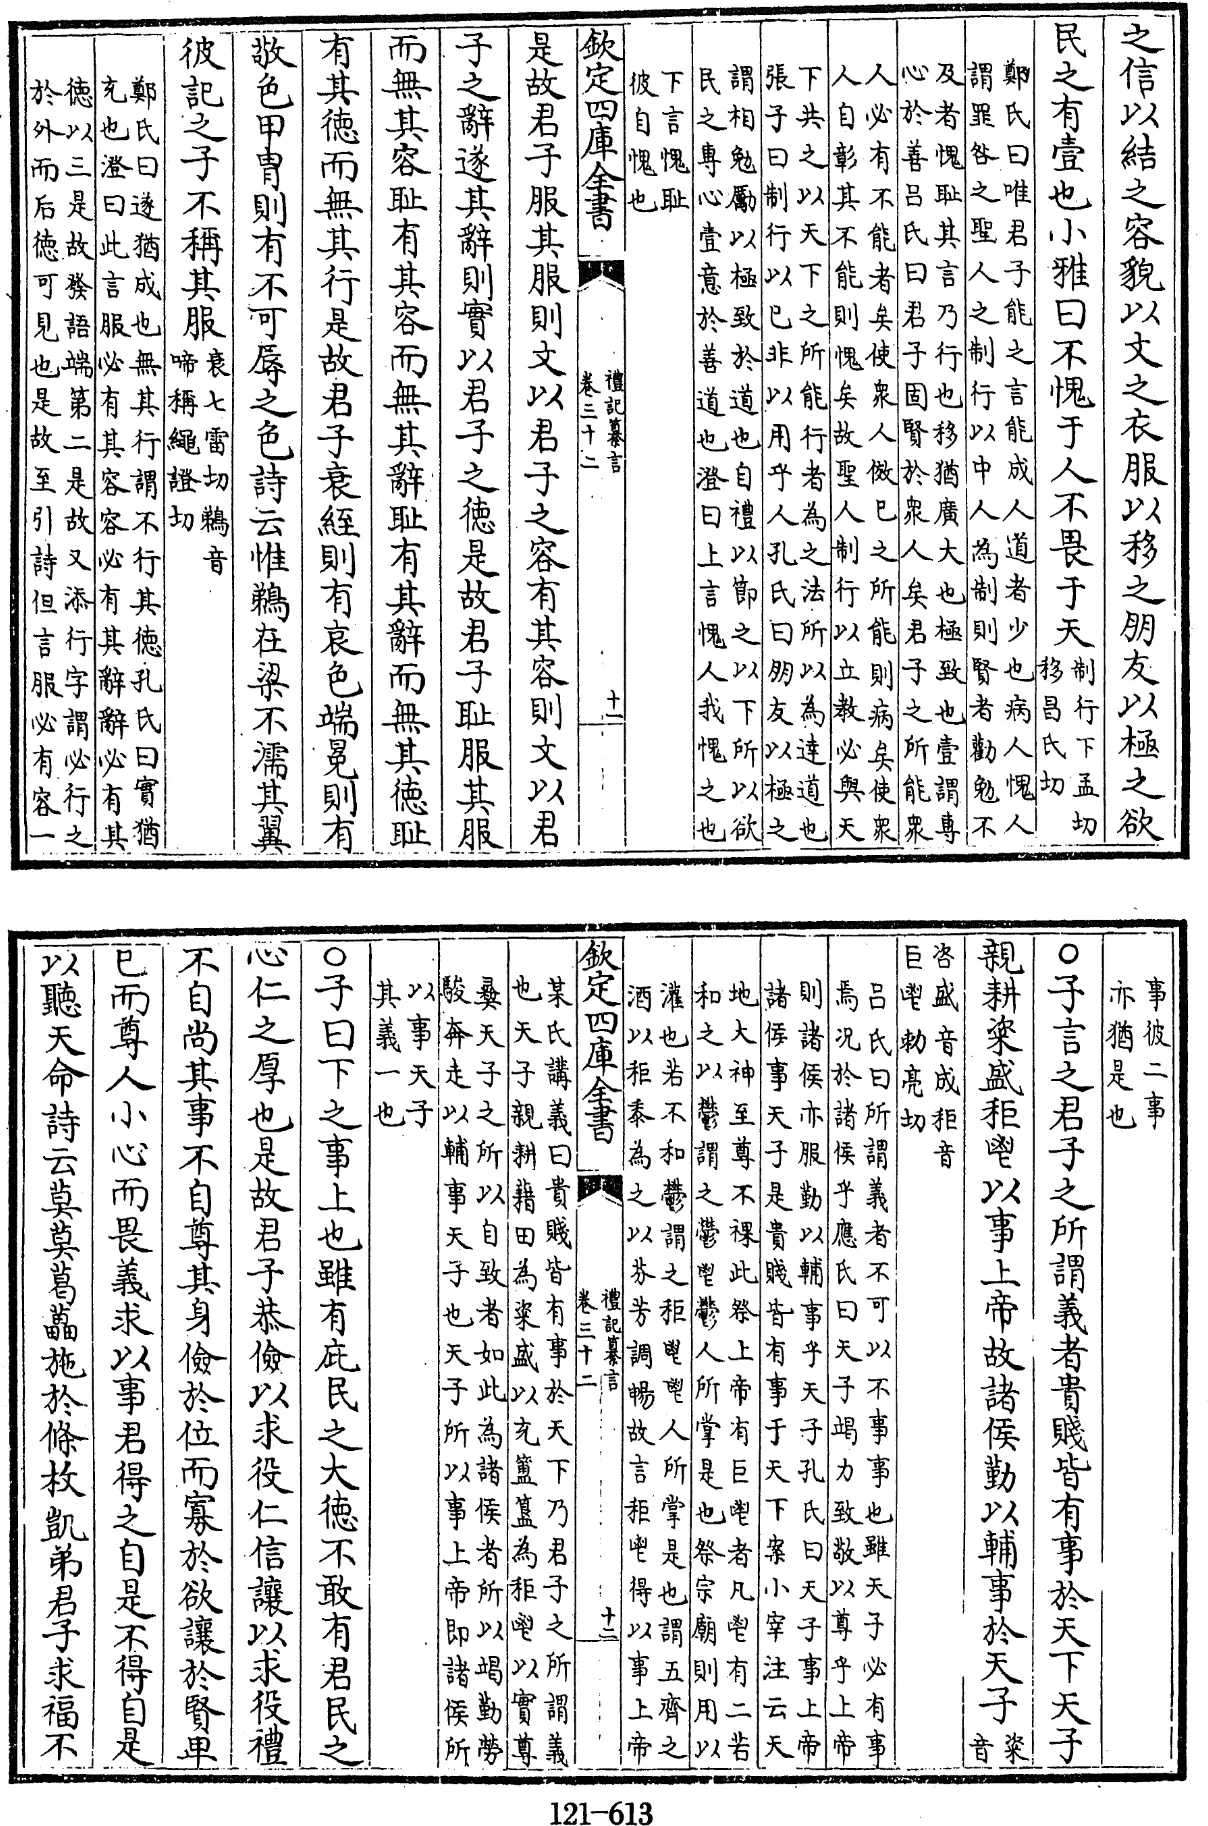 之信以結之容貌以文之衣服以移之朋友以極之欲
民之有壹也小雅曰不愧于人不畏于天制行下孟切
移昌氏切
鄭氏曰唯君子能之言能成人道者少也病人愧人
謂罪咎之聖人之制行以中人為制則賢者勸勉不
及者愧耻其言乃行也移猶廣大也極致也壹謂專
心於善呂氏曰君子固賢於衆人矣君子之所能衆
人必有不能者矣使衆人倣已之所能則病矣使衆
人自彰其不能則愧矣故聖人制行以立教必與天
下共之以天下之所能行者為之法所以為達道也
張子曰制行以已非以用乎人孔氏曰朋友以極之
謂相勉勵以極致於道也自禮以節之以下所以欲
民之專心壹意於善道也澄曰上言愧人我愧之也
下言愧耻
彼自愧也
欽定四庫全書
禮記纂言
卷三十二
十一
是故君子服其服則文以君子之容有其容則文以君
子之辭遂其辭則實以君子之徳是故君子耻服其服
而無其容耻有其容而無其辭耻有其辭而無其徳耻
有其徳而無其行是故君子衰絰則有哀色端冕則有
敬色甲冑則有不可辱之色詩云惟鵜在梁不濡其翼
彼記之子不稱其服衰七雷切鵜音
啼稱繩證切
鄭氏曰遂猶成也無其行謂不行其徳孔氏曰實猶
充也澄曰此言服必有其容容必有其辭辭必有其
徳以三是故發語端第二是故又添行字謂必行之
於外而后徳可見也是故至引詩但言服必有容一
事彼二事
亦猶是也
○子言之君子之所謂義者貴賤皆有事於天下天子
親耕粢盛秬鬯以事上帝故諸侯勤以輔事於天子粢
音
咨盛音成秬音
巨鬯勅亮切
呂氏曰所謂義者不可以不事事也雖天子必有事
焉況於諸侯乎應氏曰天子竭力致敬以尊乎上帝
則諸侯亦服勤以輔事乎天子孔氏曰天子事上帝
諸侯事天子是貴賤皆有事于天下案小宰注云天
地大神至尊不祼此祭上帝有巨鬯者凡鬯有二若
和之以鬱謂之鬱鬯鬱人所掌是也祭宗廟則用以
灌也若不和鬱謂之秬鬯鬯人所掌是也謂五齊之
酒以秬黍為之以芬芳調暢故言秬鬯得以事上帝
欽定四庫全書
禮記纂言
卷三十二
十二
某氏講義曰貴賤皆有事於天下乃君子之所謂義
也天子親耕藉田為粢盛以充簠簋為秬鬯以實尊
彛天子之所以自致者如此為諸侯者所以竭勤勞
駿奔走以輔事天子也天子所以事上帝即諸侯所
以事天子
其義一也
○子曰下之事上也雖有庇民之大徳不敢有君民之
心仁之厚也是故君子恭儉以求役仁信讓以求役禮
不自尚其事不自尊其身儉於位而寡於欲讓於賢卑
已而尊人小心而畏義求以事君得之自是不得自是
以聽天命詩云莫莫葛藟施於條枚凱弟君子求福不
121-613